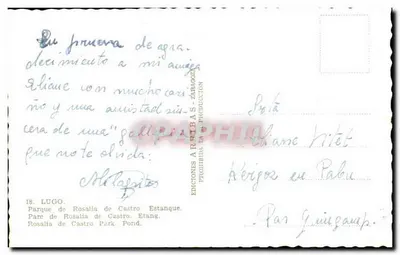 En prueva de agra-
decimiento a mi amiga
Eliane con mucho cari-
ño y una amistad sin-
cera de una "gallega"
que no te olvida:
18. LUGO.
Parque de Rosalía de Castro. Estanque.
Parc de Rosalía de Castro. Étang.
Rosalía de Castro Park. Pond.
EDICIONES ARRIBAS - ZARAGOZA
PROHIBIDA LA REPRODUCCION
en Pabu
"Par Guingamp"